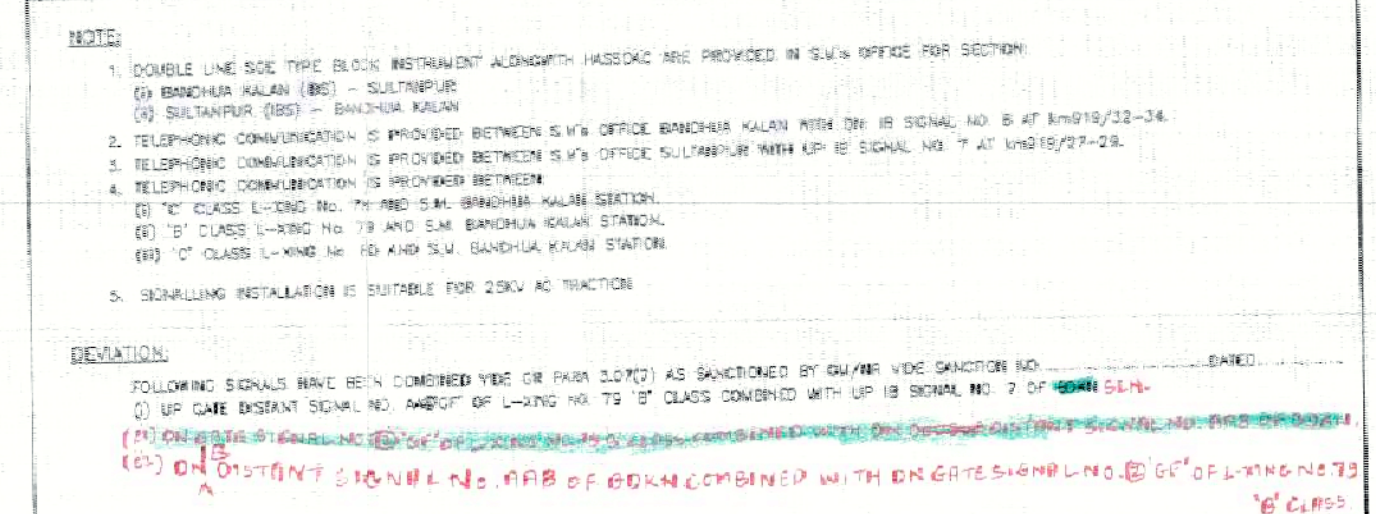 NOTE:
1. DOUBLE LINE SGE TYPE BLOCK INSTRUMENT ALONGWITH HASSDAC ARE PROVIDED IN S.M's OFFICE FOR SECTION:
(i) BANDHUA KALAN (IBS) – SULTANPUR
(ii) SULTANPUR (IBS) – BANDHUA KALAN
2. TELEPHONIC COMMUNICATION IS PROVIDED BETWEEN S.M's OFFICE BANDHUA KALAN WITH DN IB SIGNAL NO. 6 AT km919/32-34.
3. TELEPHONIC COMMUNICATION IS PROVIDED BETWEEN S.M's OFFICE SULTANPUR WITH UP IB SIGNAL NO. 7 AT km919/27-29.
4. TELEPHONIC COMMUNICATION IS PROVIDED BETWEEN
(i) "C" CLASS L-XING No. AND S.M. BANDHUA KALAN STATION.
(ii) "B" CLASS L-XING No 79 AND S.M. BANDHUA KALAN STATION.
(iii) "C" CLASS L-XING No 80 AND S.M. BANDHUA KALAN STATION.
5. SIGNALLING INSTALLATION IS SUITABLE FOR 25KV AC TRACTION
DEVIATION:
FOLLOWING SIGNALS HAVE BEEN COMBINED VIDE GR PARA 3.07(7) AS SANCTIONED BY GM/NR VIDE SANCTION NO. DATED
(i) UP GATE DISTANT SIGNAL NO. OF L-XING NO. 79 "B" CLASS COMBINED WITH UP IB SIGNAL NO. 7 OF SLN.
(ii) DN GATE SIGNAL NO. "GF" OF CLASS COMBINED WITH DN DISTANT SIGNAL NO. AAB OF BDKN.
(ii) DN DISTANT SIGNAL No. AAB OF BDKN COMBINED WITH DN GATE SIGNAL NO. "GF" OF L-XING NO. 79
"B" CLASS